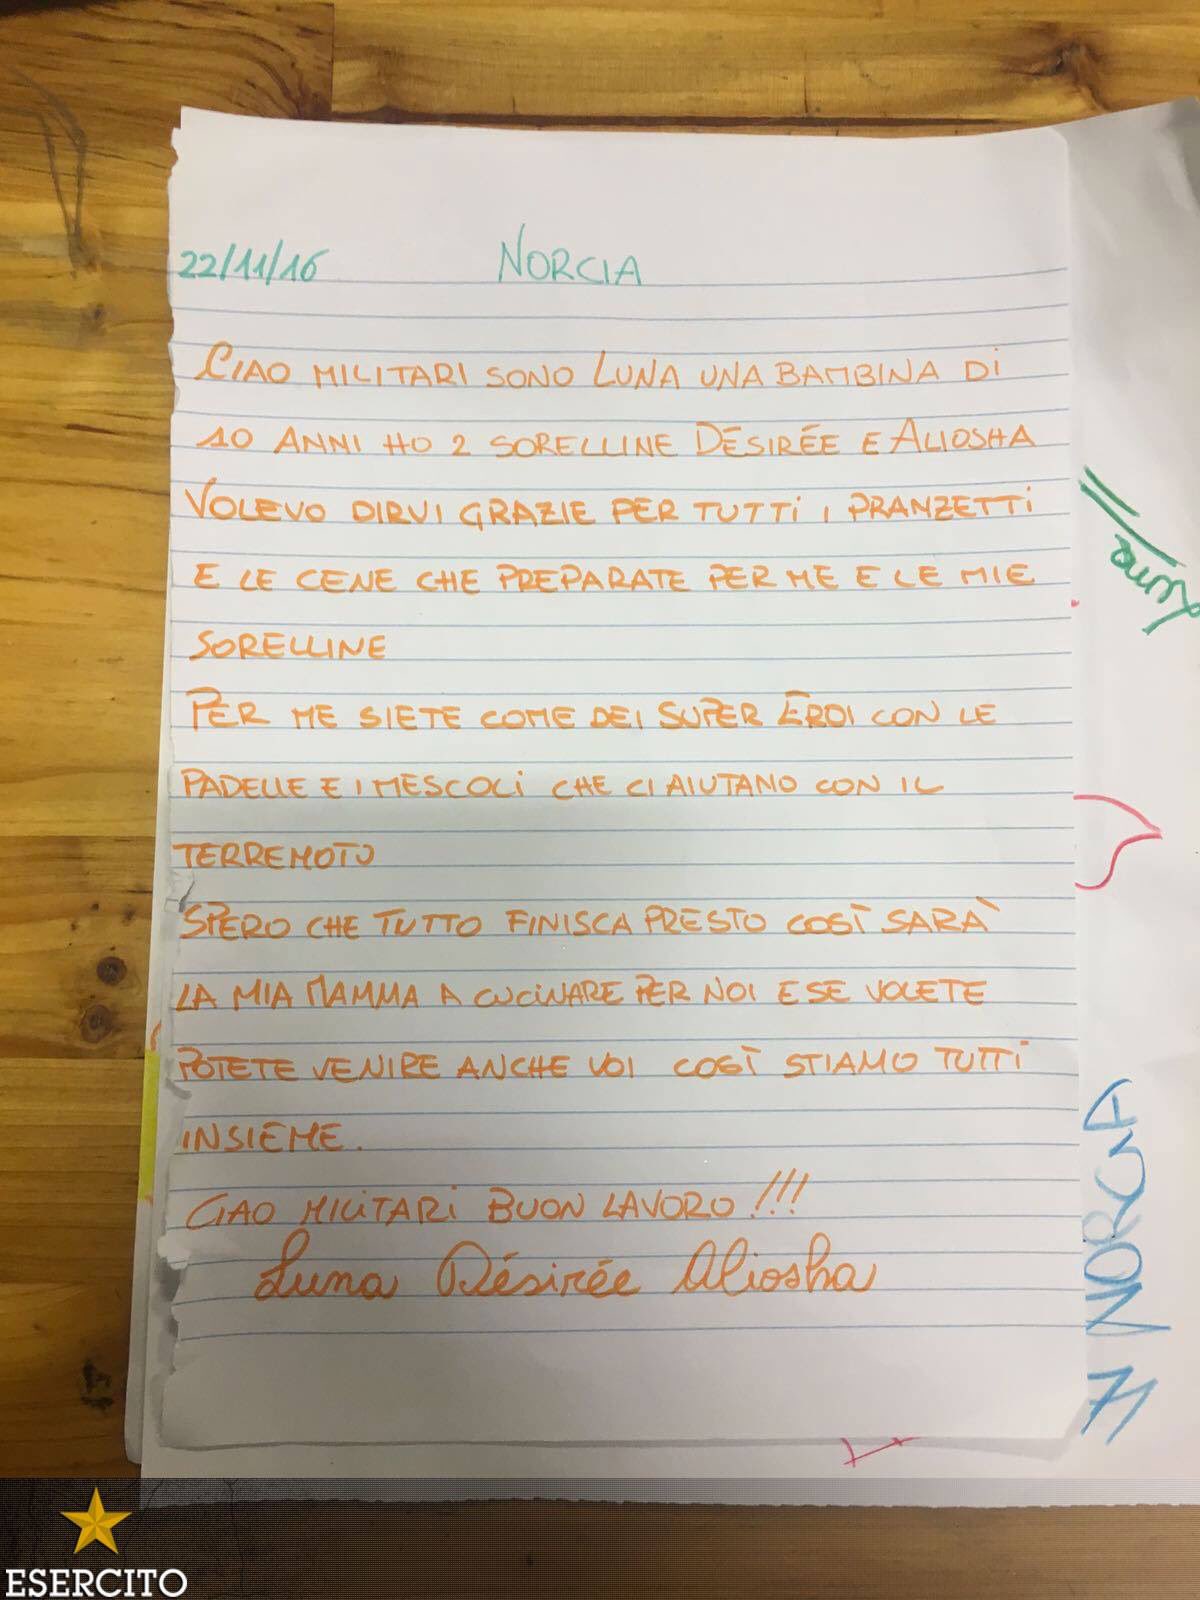 22/11/16 NORCIA
CIAO MILITARI SONO LUNA UNA BAMBINA DI
10 ANNI HO 2 SORELLINE DÉSIRÉE E ALIOSHA
VOLEVO DIRVI GRAZIE PER TUTTI I PRANZETTI
E LE CENE CHE PREPARATE PER ME E LE MIE
SORELLINE
PER ME SIETE COME DEI SUPER EROI CON LE
PADELLE E I MESCOLI CHE CI AIUTANO CON IL
TERREMOTO
SPERO CHE TUTTO FINISCA PRESTO COSÌ SARÀ
LA MIA MAMMA A CUCINARE PER NOI E SE VOLETE
POTETE VENIRE ANCHE VOI COSÌ STIAMO TUTTI
INSIEME.
CIAO MILITARI BUON LAVORO!!!
Luna Désirée Aliosha
NORCIA
ESERCITO